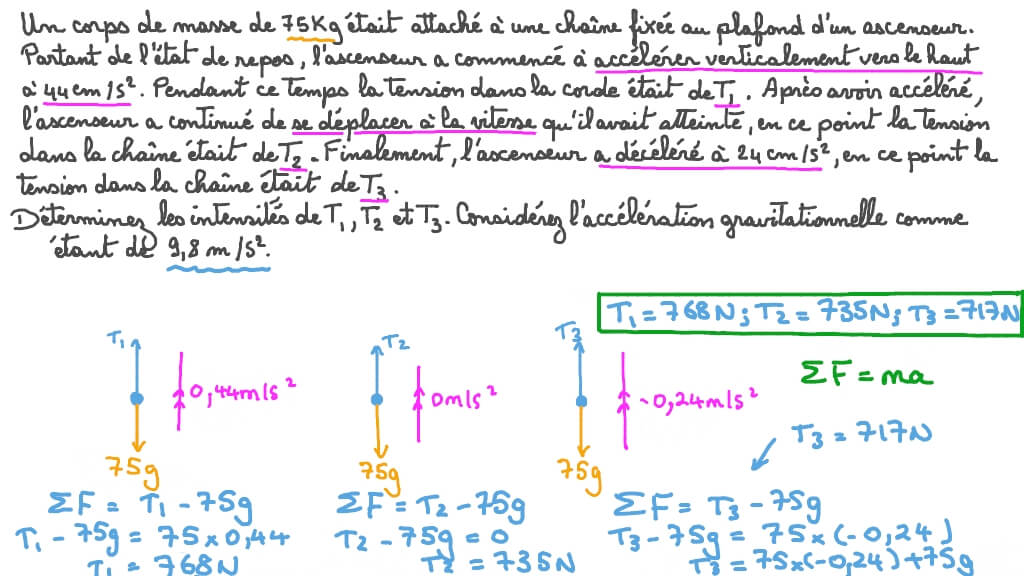 Un corps de masse de 75Kg était attaché à une chaîne fixée au plafond d'un ascenseur.
Partant de l'état de repos, l'ascenseur a commencé à accélérer verticalement vers le haut
à 44cm/s². Pendant ce temps la tension dans la corde était de T₁. Après avoir accéléré,
l'ascenseur a continué de se déplacer à la vitesse qu'il avait atteinte, en ce point la tension
dans la chaîne était de T₂. Finalement, l'ascenseur a décéléré à 24cm/s², en ce point la
tension dans la chaîne était de T₃.
Déterminez les intensités de T₁, T₂ et T₃. Considérez l'accélération gravitationnelle comme
étant de 9,8m/s².
T₁=768N; T₂=735N; T₃=717N
T₁
T₂
T₃
ΣF=ma
0,44m/s²
0m/s²
-0,24m/s²
T₃=717N
75g
75g
75g
ΣF= T₁-75g
ΣF= T₂-75g
ΣF= T₃-75g
T₁-75g= 75×0,44
T₂-75g=0
T₃-75g= 75×(-0,24)
T₁=768N
T₂=735N
T₃=75×(-0,24)+75g